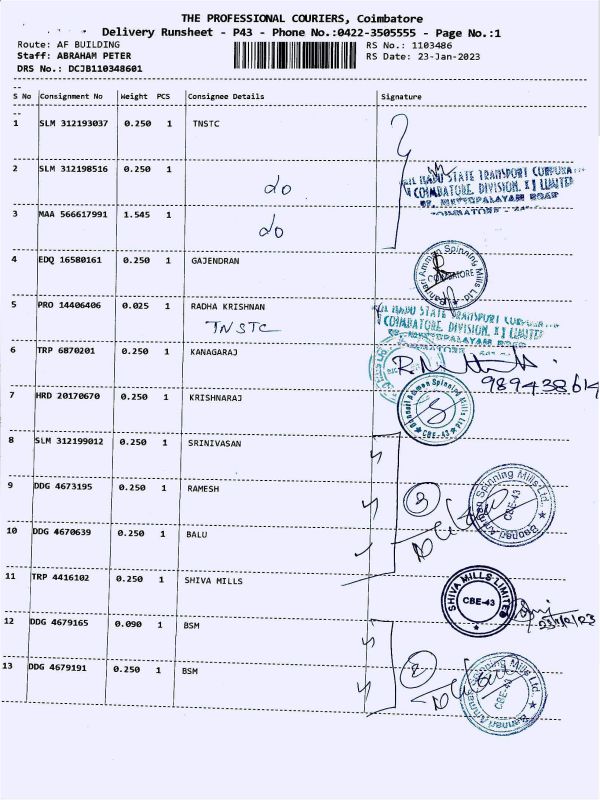 THE PROFESSIONAL COURIERS, Coimbatore
Delivery Runsheet - P43 - Phone No.:0422-3505555 - Page No.:1
Route: AF BUILDING
RS No.: 1103486
Staff: ABRAHAM PETER
RS Date: 23-Jan-2023
DRS No.: DCJB110348601
S No Consignment No Weight PCS Consignee Details Signature
1 SLM 312193037 0.250 1 TNSTC
2 SLM 312198516 0.250 1
do
STATE TRANSPORT
COIMBATORE. DIVISION.
3 MAA 566617991 1.545 1
do
4 EDQ 16580161 0.250 1 GAJENDRAN
Bannari Amman Spinning Mills Ltd.
COIMBATORE
5 PRO 14406406 0.025 1 RADHA KRISHNAN
TNSTC
COIMBATORE, DIVISION,
6 TRP 6870201 0.250 1 KANAGARAJ
9894438614
7 HRD 20170670 0.250 1 KRISHNARAJ
Bannari Amman Spinning Mills Ltd.
CBE-43
8 SLM 312199012 0.250 1 SRINIVASAN
9 DDG 4673195 0.250 1 RAMESH
3
Bannari Amman Spinning Mills Ltd.
CBE-43
10 DDG 4670639 0.250 1 BALU
11 TRP 4416102 0.250 1 SHIVA MILLS
SHIVA MILLS LIMITED
CBE-43
12 DDG 4679165 0.090 1 BSM
13 DDG 4679191 0.250 1 BSM
2
Bannari Amman Spinning Mills Ltd.
CBE-43